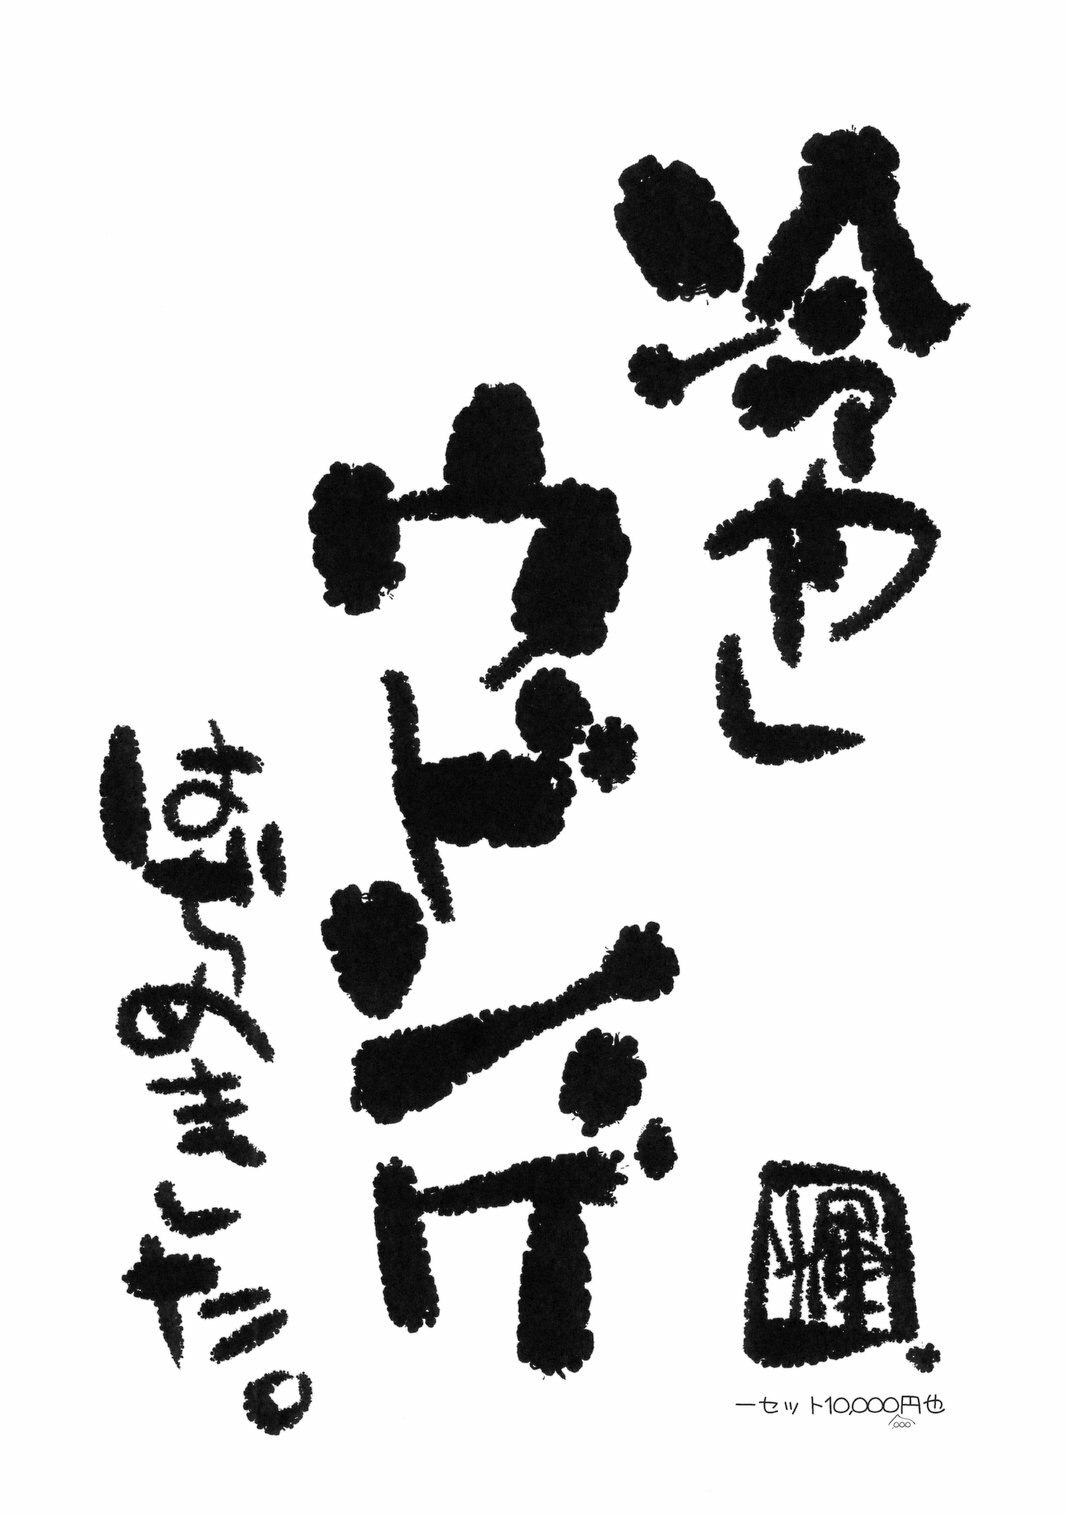 冷やし
ウドンゲ
はじめました。
輝
一セット10,000円也
,000